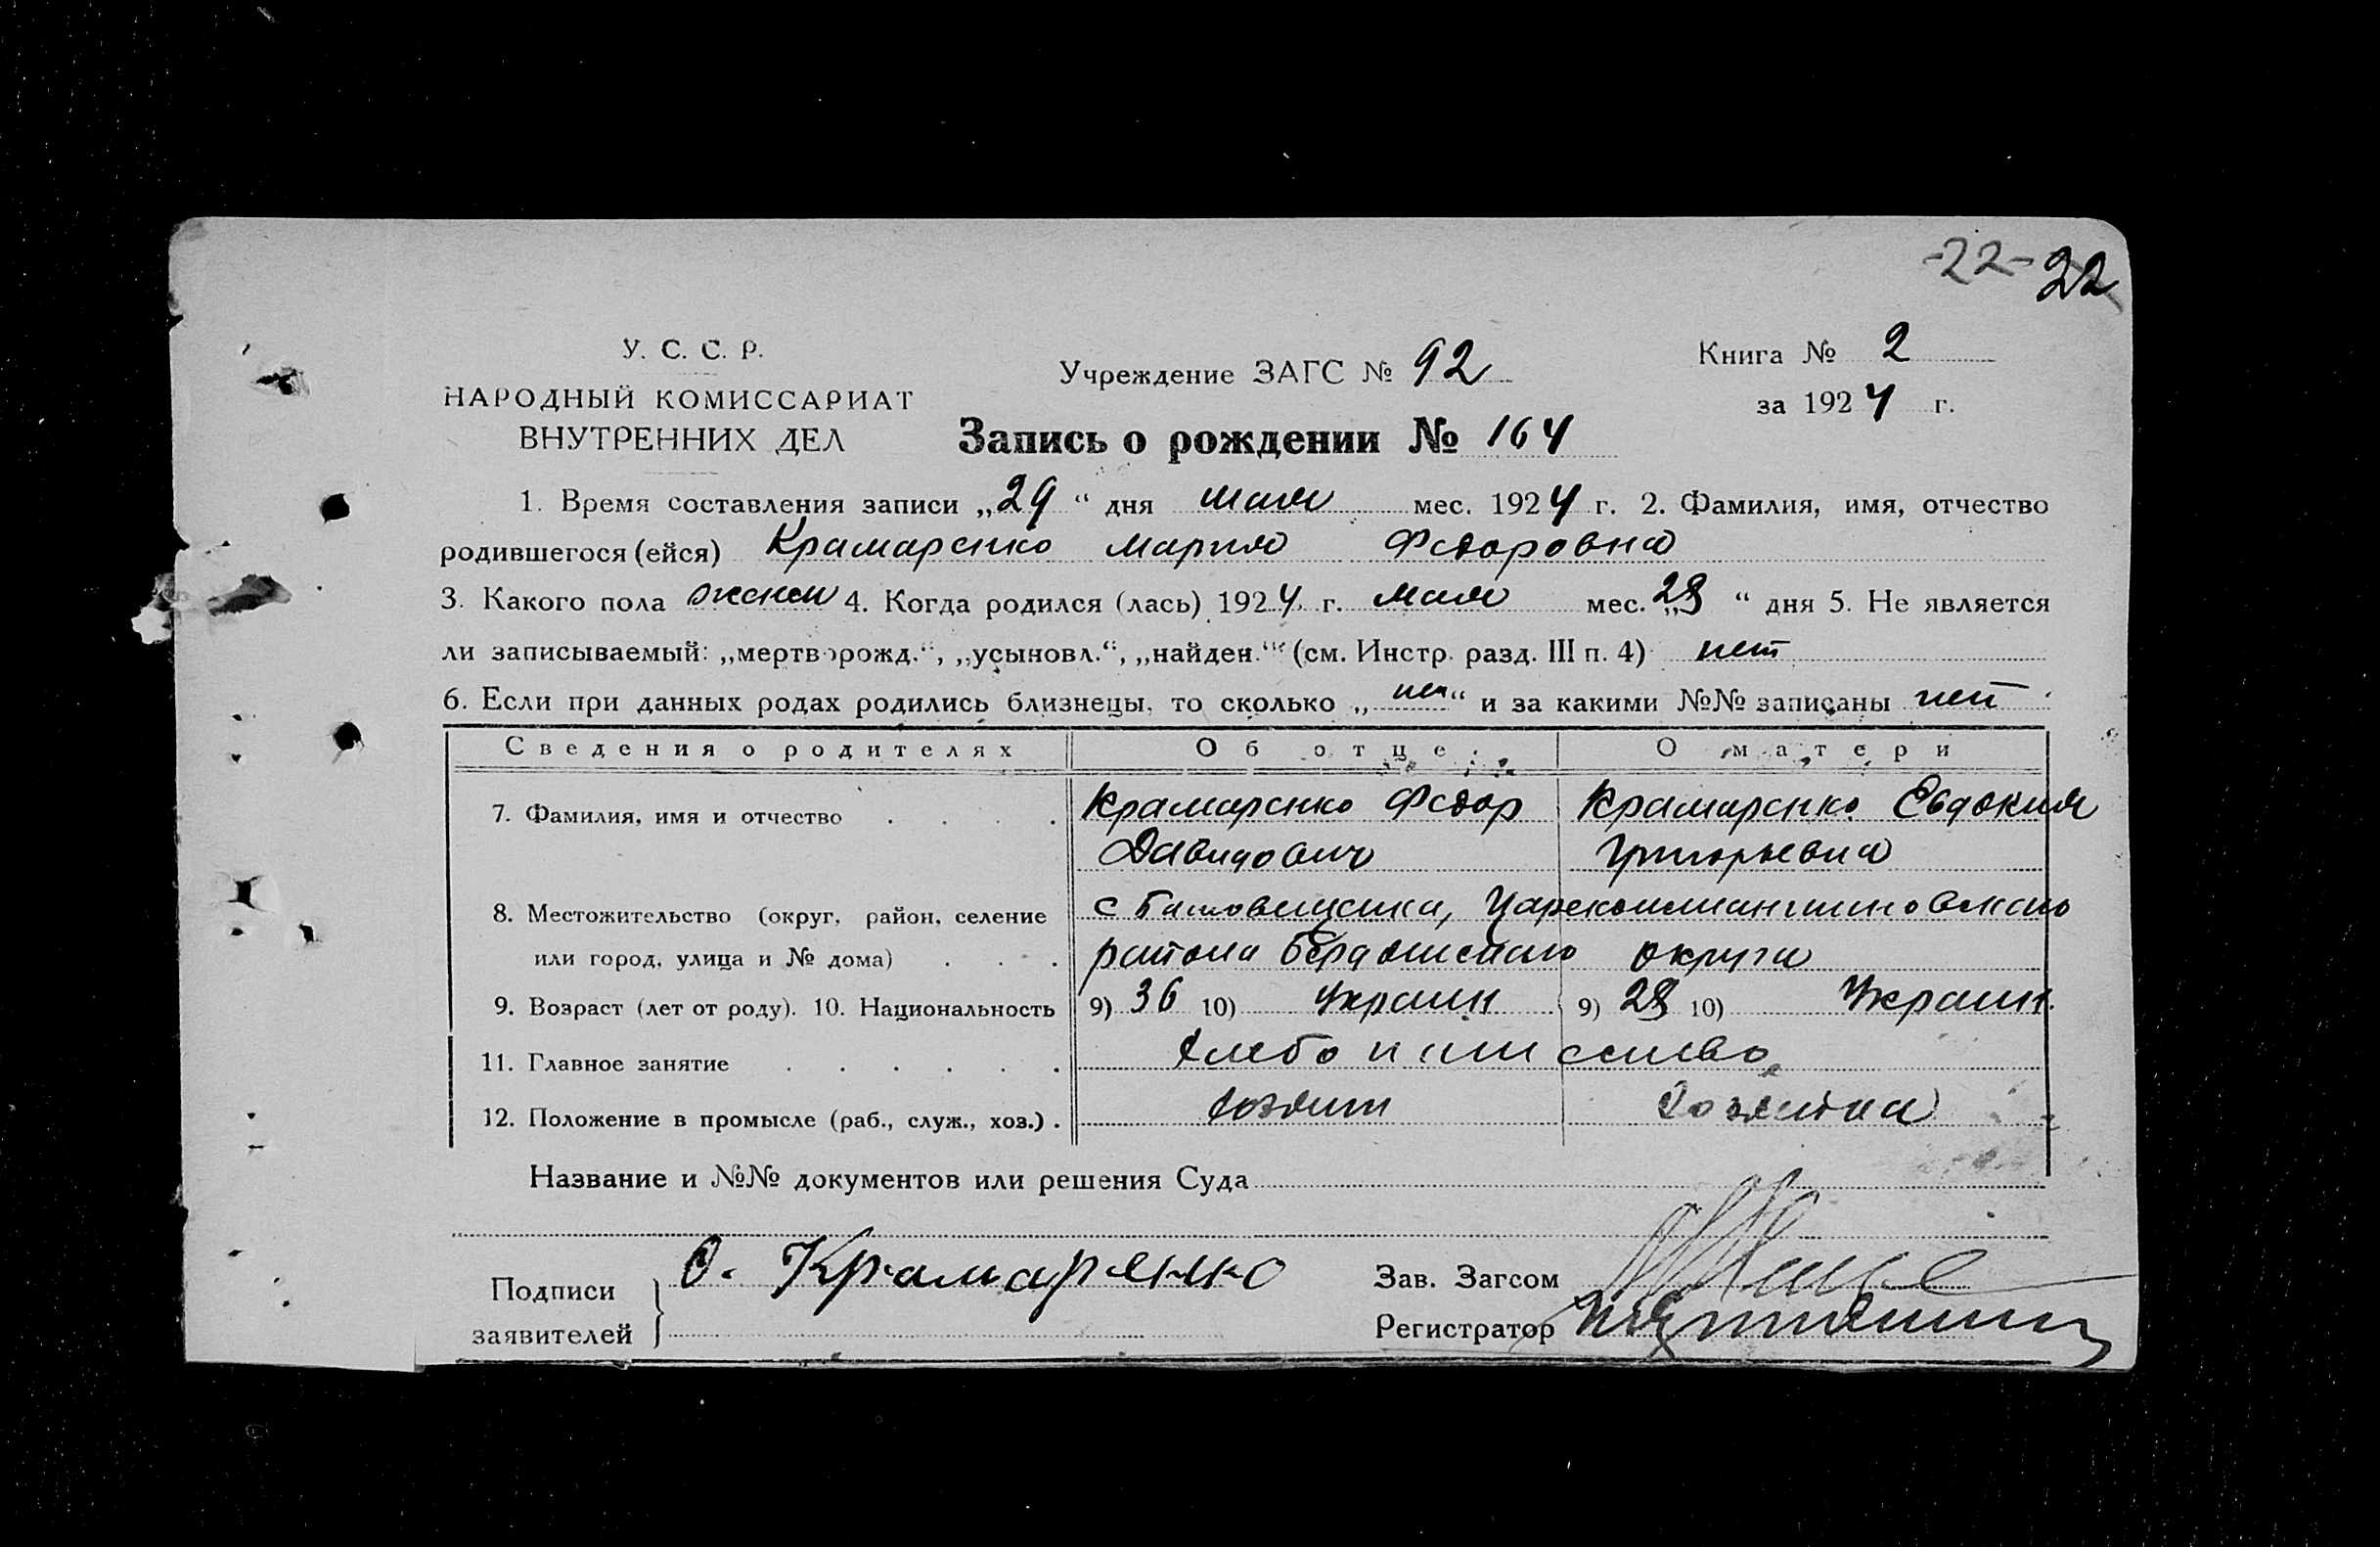 -22- 22
У. С. С. Р.
НАРОДНЫЙ КОМИССАРИАТ
ВНУТРЕННИХ ДЕЛ
Учреждение ЗАГС № 92
Книга № 2
за 1924 г.
Запись о рождении № 164
1. Время составления записи „29“ дня мая мес. 1924 г. 2. Фамилия, имя, отчество
родившегося (ейся) Крамаренко Мария Федоровна
3. Какого пола женск 4. Когда родился (лась) 1924 г. мая мес. „28“ дня 5. Не является
ли записываемый: „мертворожд.“, „усыновл.“, „найден.“ (см. Инстр. разд. III п. 4) нет
6. Если при данных родах родились близнецы, то сколько „нет“ и за какими №№ записаны нет
Сведения о родителях Об отце О матери
7. Фамилия, имя и отчество Крамаренко Федор Крамаренко Евдокия
Давидович Григорьевна
8. Местожительство (округ, район, селение с Цареконстантиновского
или город, улица и № дома) района округа
9. Возраст (лет от роду). 10. Национальность 9) 36 10) Украин 9) 28 10) Украин.
11. Главное занятие Хлебопашество
12. Положение в промысле (раб., служ., хоз.) . хозяин хозяйка
Название и №№ документов или решения Суда
Подписи
заявителей
О. Крамаренко
Зав. Загсом
Регистратор